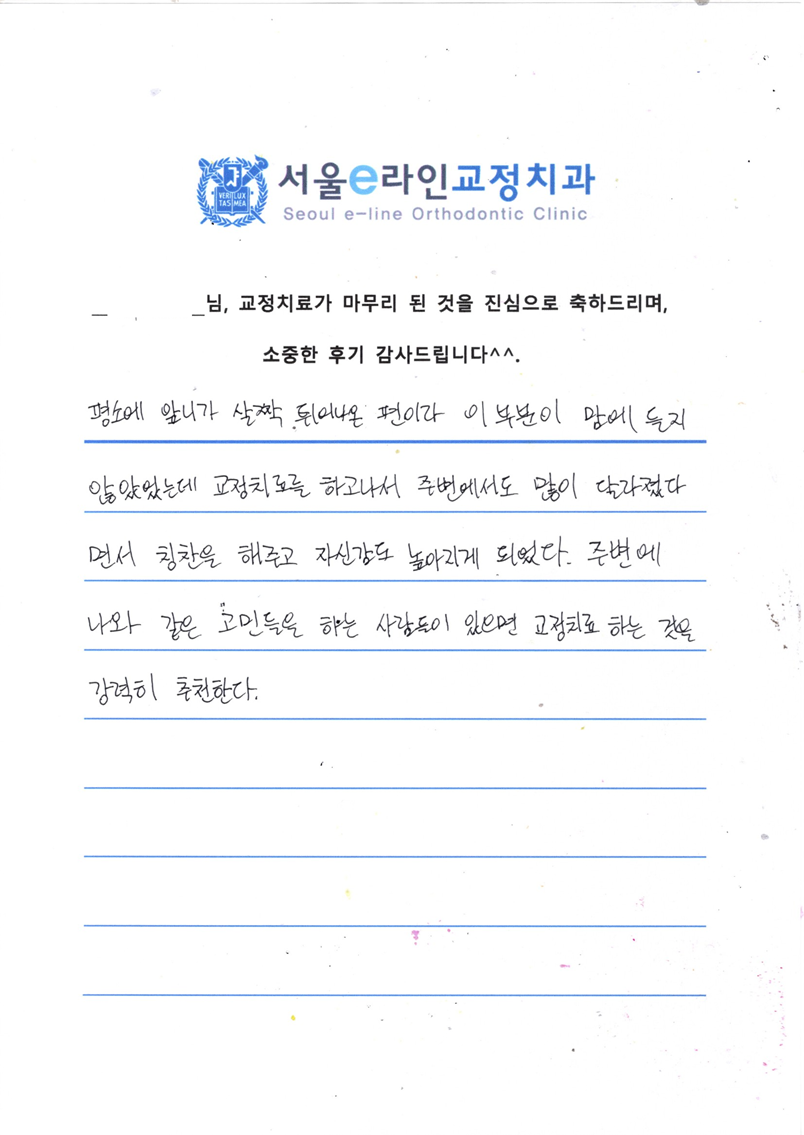 VERI LUX
TAS MEA
서울e라인교정치과
Seoul e-line Orthodontic Clinic
_ _님, 교정치료가 마무리 된 것을 진심으로 축하드리며,
소중한 후기 감사드립니다^^.
평소에 앞니가 살짝 튀어나온 편이라 이 부분이 맘에 들지
않았었는데 교정치료를 하고나서 주변에서도 많이 달라졌다
면서 칭찬을 해주고 자신감도 높아지게 되었다. 주변에
나와 같은 고민들을 하는 사람들이 있으면 교정치료 하는 것을
강력히 추천한다.